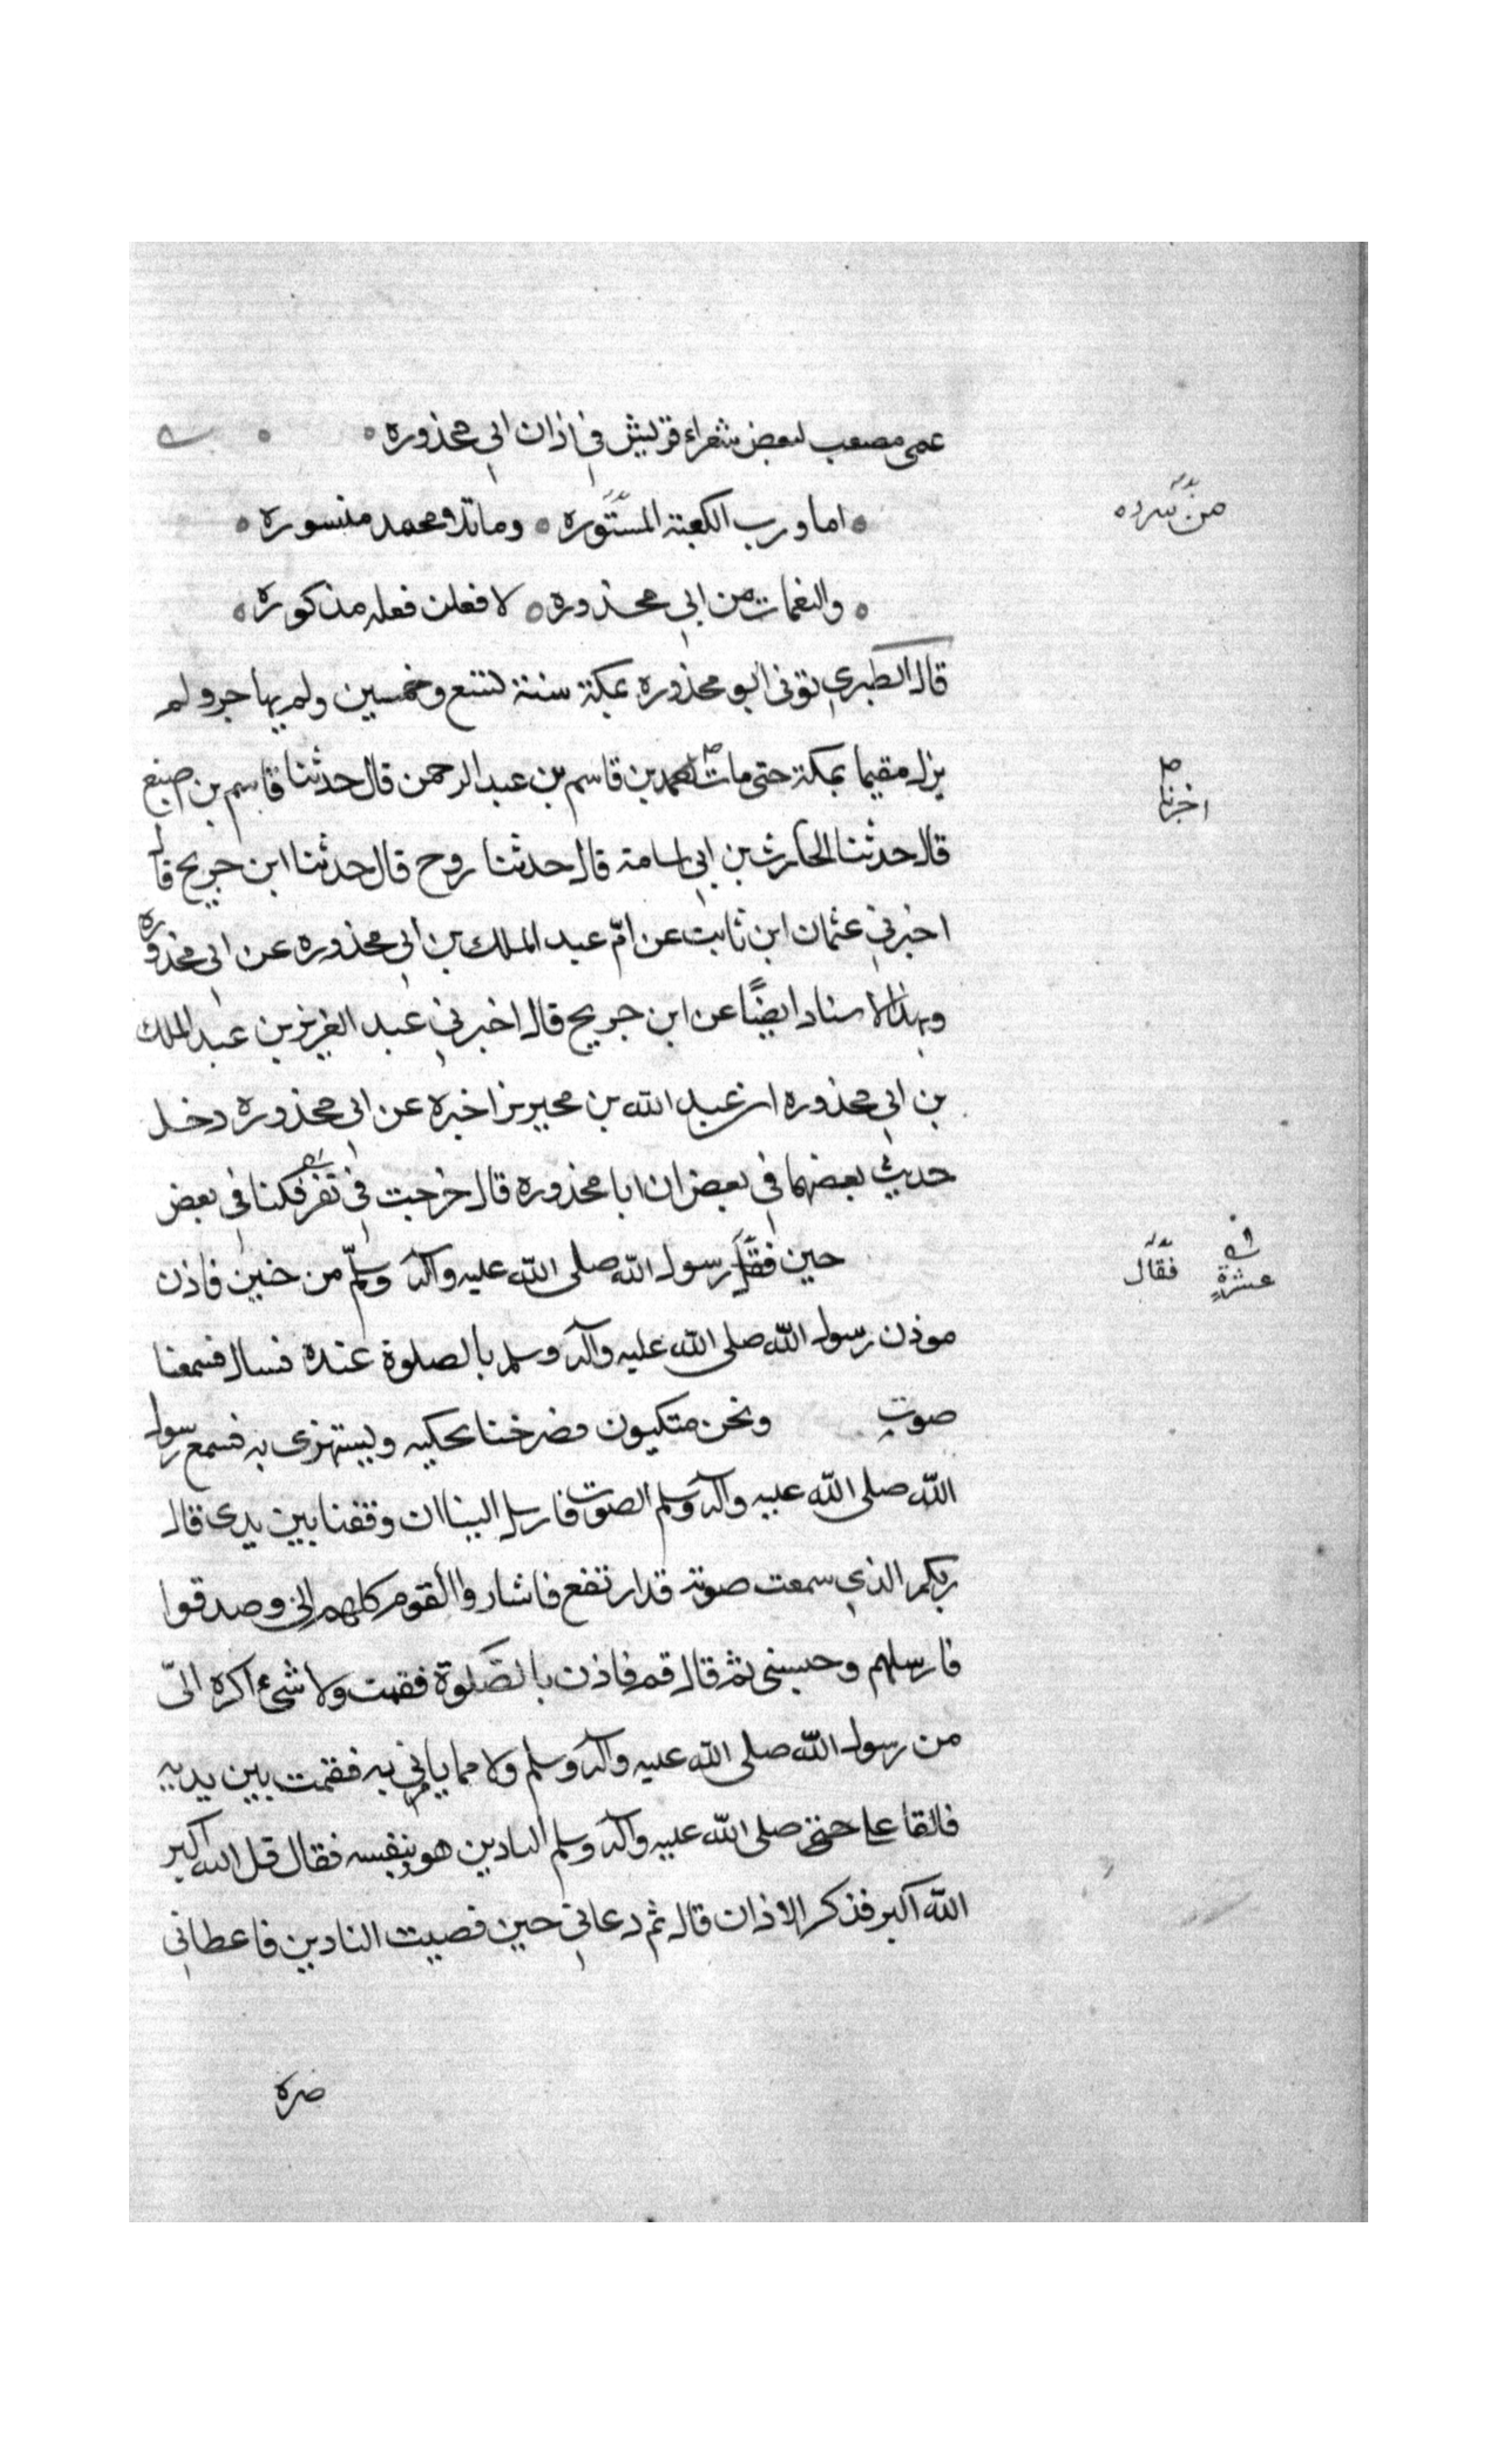 عمى مصعب لبعض شعراء قريش في اذان ابي محذوره
اما ورب الكعبة المستوره وما تلا محمد من سوره
والنغمات من ابي محذوره لا فعلن فعله مذكوره
قال الطبري توفى ابو محذوره بمكة سنة تسع وخمسين ولم يهاجر ولم
يزل مقيما بمكة حتى مات احمد بن قاسم بن عبد الرحمن قال حدثنا قاسم بن اصبغ
قال حدثنا الحارث بن ابي اسامة قال حدثنا روح قال حدثنا ابن جريح قال
اخبرني عثمان ابن ثابت عن امّ عبد الملك بن ابي محذوره عن ابي محذوره
وبهذا الاسناد ايضًا عن ابن جريح قال اخبرني عبد العزيز بن عبد الملك
بن ابي محذوره ان عبد الله بن محيريز اخبره عن ابي محذوره دخل
حديث بعضهما في بعض ان ابا محذوره قال خرجت في نفر فكنا في بعض
حين فقل رسول الله صلى الله عليه وآله وسلّم من حنين فاذن
موذن رسول الله صلى الله عليه وآله وسلم بالصلوة عنده فسال فسمعنا
صوت ونحن متكيون فصرخنا نحكيه ويستهزى به فسمع رسول
الله صلى الله عليه وآله وسلم الصوت فارسل الينا ان وقفنا بين يدى قال
ايكم الذي سمعت صوته قد ارتفع فاشاروا القوم كلهم الي وصدقوا
فارسلهم وحبسنى ثم قال قم فاذن بالصّلوة فقمت ولا شىء اكره اليّ
من رسول الله صلى الله عليه وآله وسلم ولا مما يامرني به فقمت بين يديه
فالقا على صلى الله عليه وآله وسلم التادين هو بنفسه فقال قل الله اكبر
الله اكبر فذكر الاذان قال ثم دعاني حين قصيت التادين فاعطاني
صره
من سرده
اخبرنا
في
عشرة
فقال